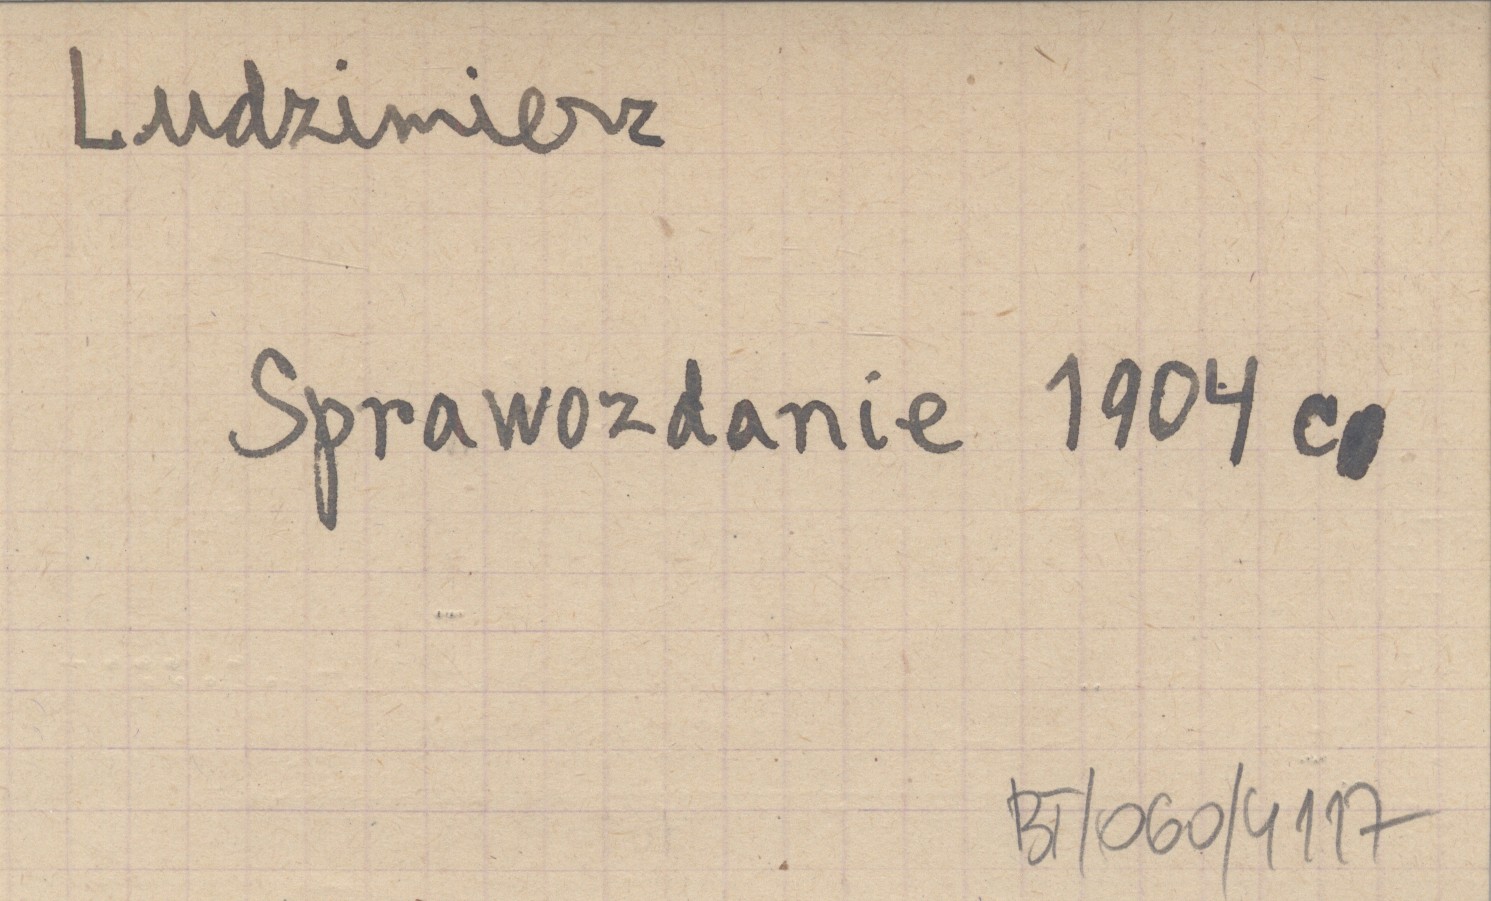 Ludzimierz
Sprawozdanie 1904 c
BT/060/4117